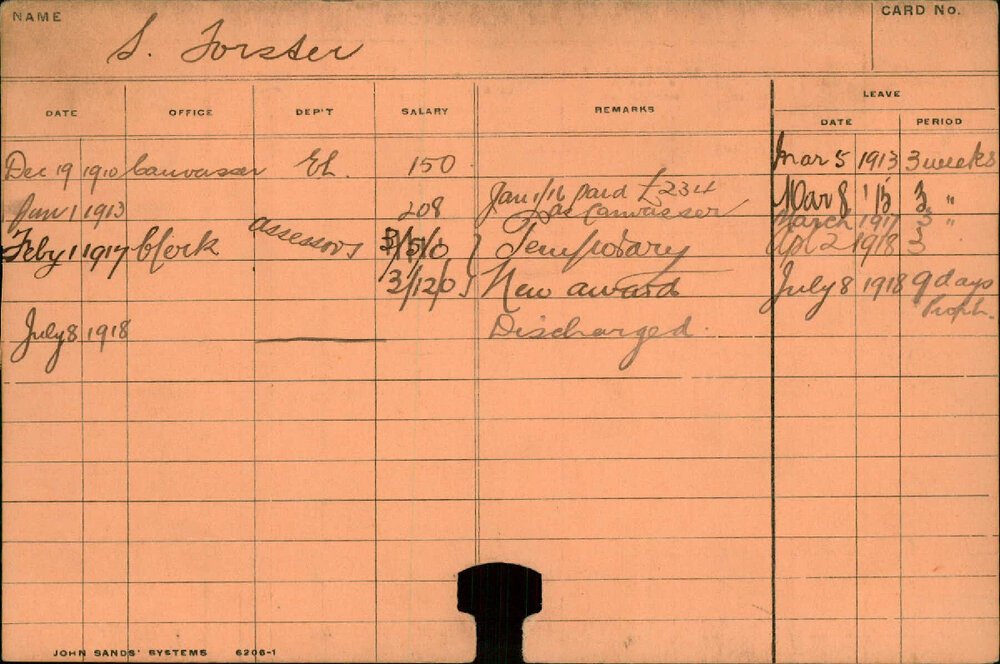 NAME
S. Forster
CARD No.
LEAVE
DATE OFFICE DEP'T SALARY REMARKS DATE PERIOD
Dec 19 1910 Canvasser El. 150 Mar 5 1913 3 weeks
Jan 1/16 paid £234 Mar 8 '15 3 "
Jan 1 1913 208 as Canvasser March 1917 3 "
Feby 1 1917 Clerk assessors 3/5/0 } Temporary Apl 2 1918 3
3/12/0 } New award July 8 1918 9 days
July 8 1918 Discharged.
JOHN SANDS' SYSTEMS 6206-1